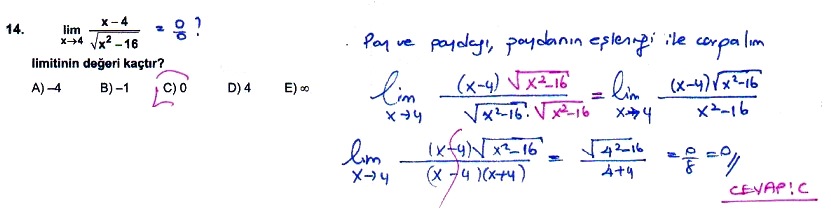 14. lim x→4 (x-4)/√(x²-16) = 0/0 ?
limitinin değeri kaçtır?
A) -4 B) -1 C) 0 D) 4 E) ∞
Pay ve paydayı, paydanın eşleniği ile çarpalım
lim x→4 (x-4)√(x²-16) / √(x²-16) · √(x²-16) = lim x→4 (x-4)√(x²-16) / x²-16
lim x→4 (x-4)√(x²-16) / (x-4)(x+4) = √(4²-16) / 4+4 = 0/8 = 0//
CEVAP: C